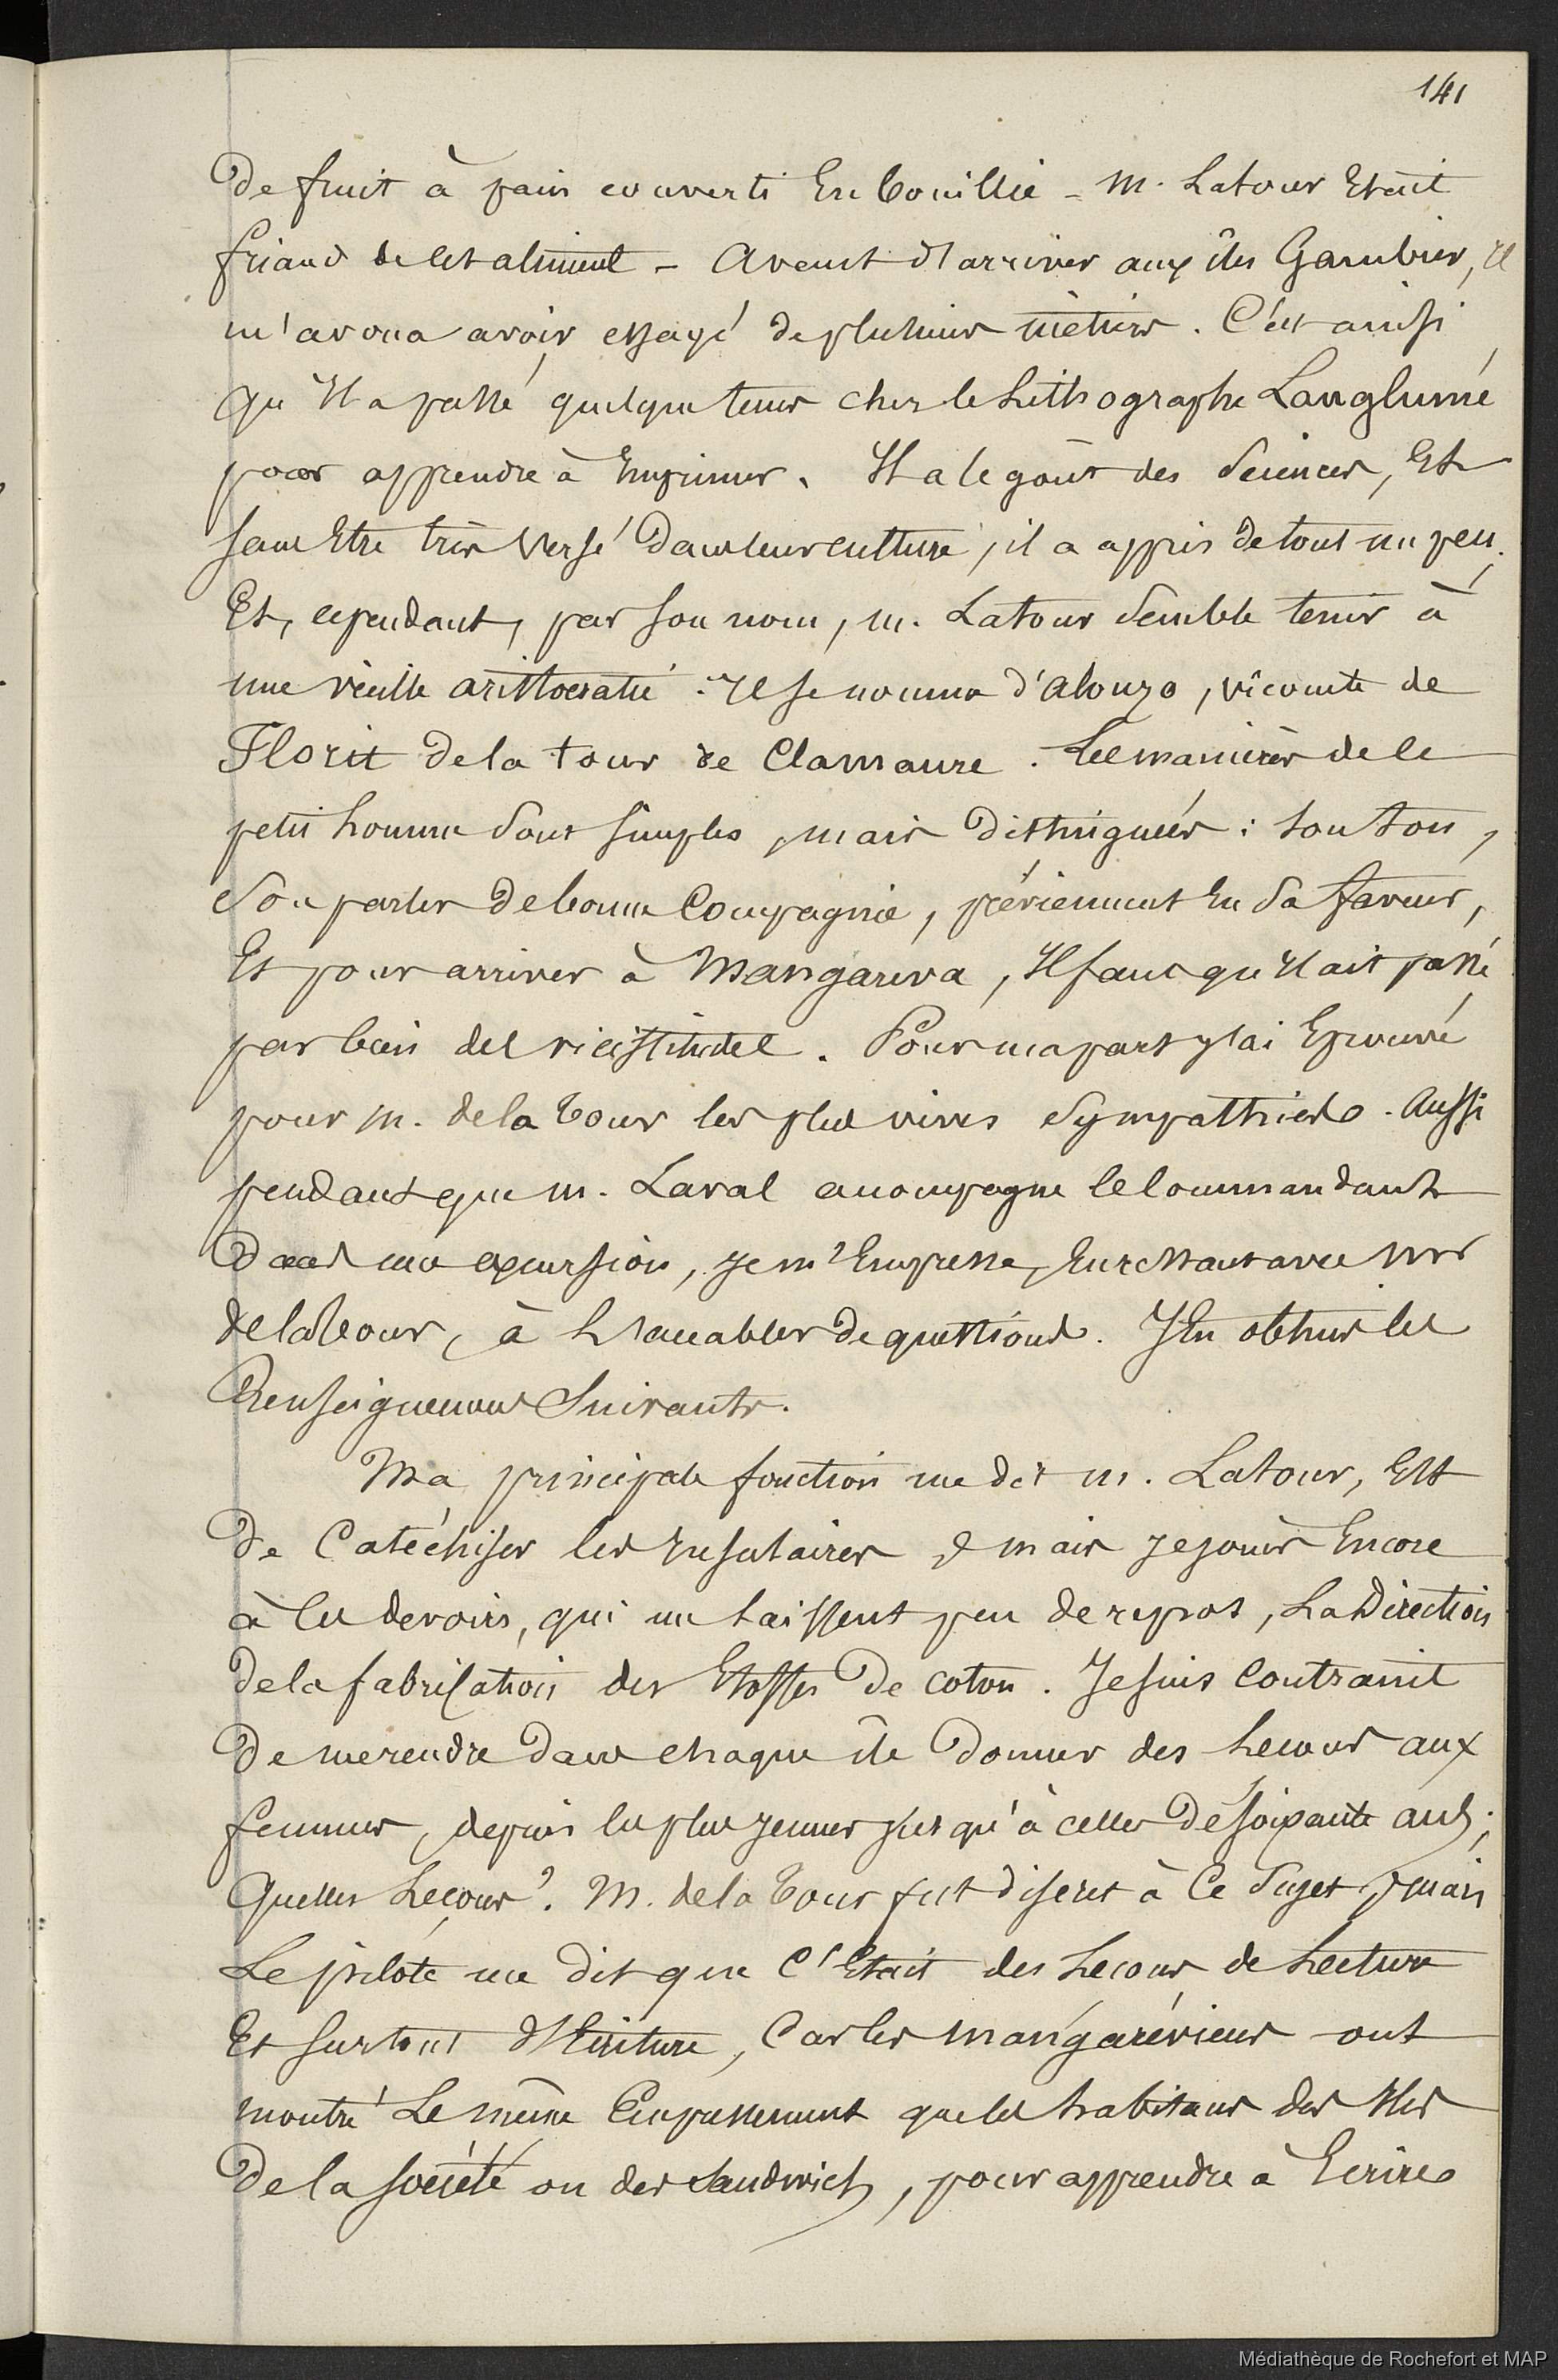 141
De fruit à pain converti En bouillie - M. Latour Etait
friand de cet aliment - Avant d'arriver aux îles Gambier, Il
m'avoua avoir essayé de plusieurs métiers. C'est ainsi
qu'Il a passé quelque tems chez le Lithographe Langlumé
pour apprendre à Imprimer. Il a le goût des Sciences, Et
sans Etre très versé dans leur culture, il a appris de tout un peu.
Et, cependant, par son nom, m. Latour Semble tenir à
une vieille aristocratie : Il se nomme d'alonzo, vicomte de
Florit de la tour de Clamaure. Les manières de ce
petit homme Sont simples, mais distinguées : son ton,
Son parler de bonne Compagnie, préviennent En Sa faveur,
Et pour arriver à Mangareva, Il faut qu'Il ait passé
par bien des vicissitudes. Pour ma part j'ai Eprouvé
pour m. de la tour les plus vives Sympathies. Aussi
pendant que m. Laval accompagne le Commandant
Dans une excursion, Je m'Empresse, En restant avec Mr
de la tour, à L'accabler de questions. J'En obtins les
Renseignemens Suivants.
Ma principale fonction me dit m. Latour, Est
De Catéchiser les Insulaires, mais Je joins Encore
à ces devoirs, qui me Laissent peu de repos, La Direction
de la fabrication des Etoffes De coton. Je suis Contraint
De me rendre dans chaque île Donner des Lecons aux
femmes, depuis les plus Jeunes Jusqu'à celles De soixante ans ;
Quelles Leçons ? M. de la tour fut discret à Ce Sujet, mais
Le pilote me dit que C'Etait des Lecons de Lecture
Et surtout d'Ecriture, Car les mangaréviens ont
montré Le même Empressement que les habitans des Iles
De la société ou des Sandwich, pour apprendre à Ecrire
Médiathèque de Rochefort et MAP